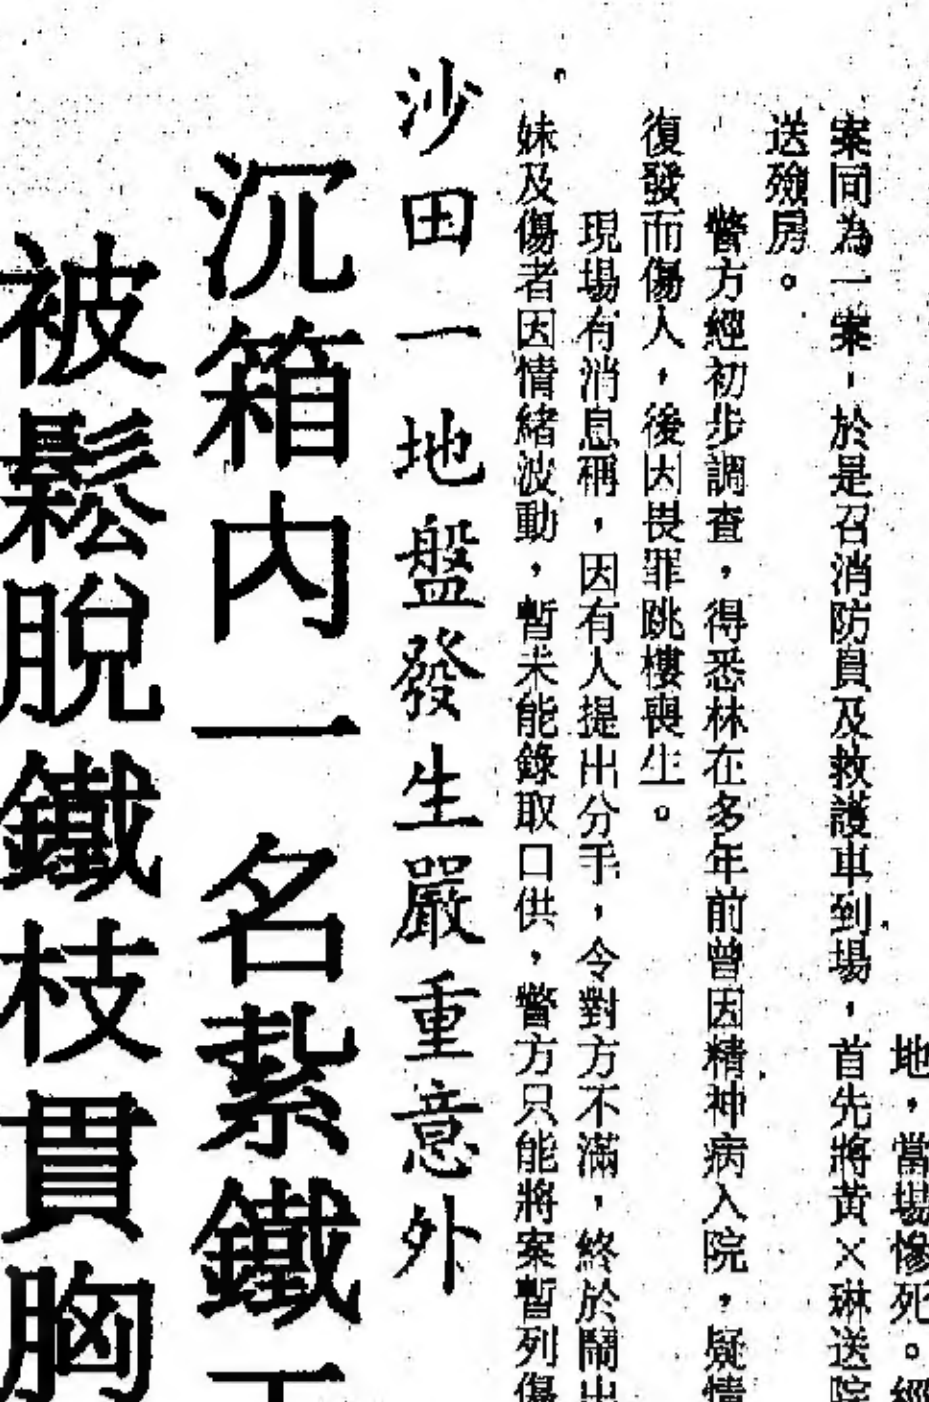 地，當場慘死。經
案同為一案，於是召消防員及救護車到場，首先將黃×琳送院
送殮房。
警方經初步調查，得悉林在多年前曾因精神病入院，疑情
復發而傷人，後因畏罪跳樓喪生。
現場有消息稱，因有人提出分手，令對方不滿，終於鬧出
。
妹及傷者因情緒波動，暫未能錄取口供，警方只能將案暫列傷
沙田一地盤發生嚴重意外
沉箱內一名紮鐵工
被鬆脫鐵枝貫胸